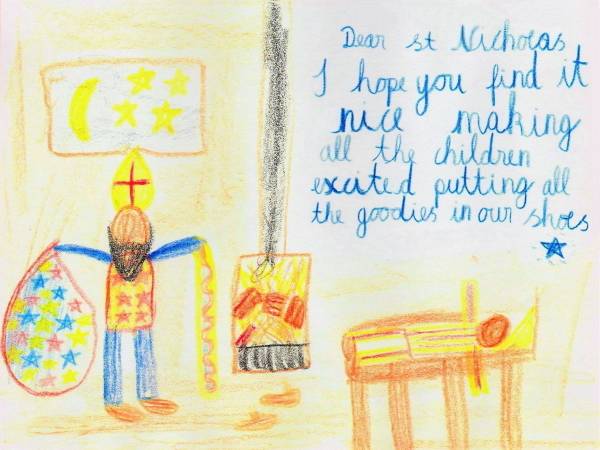 Dear st Nicholas
I hope you find it
nice making
all the children
excited putting all
the goodies in our shoes